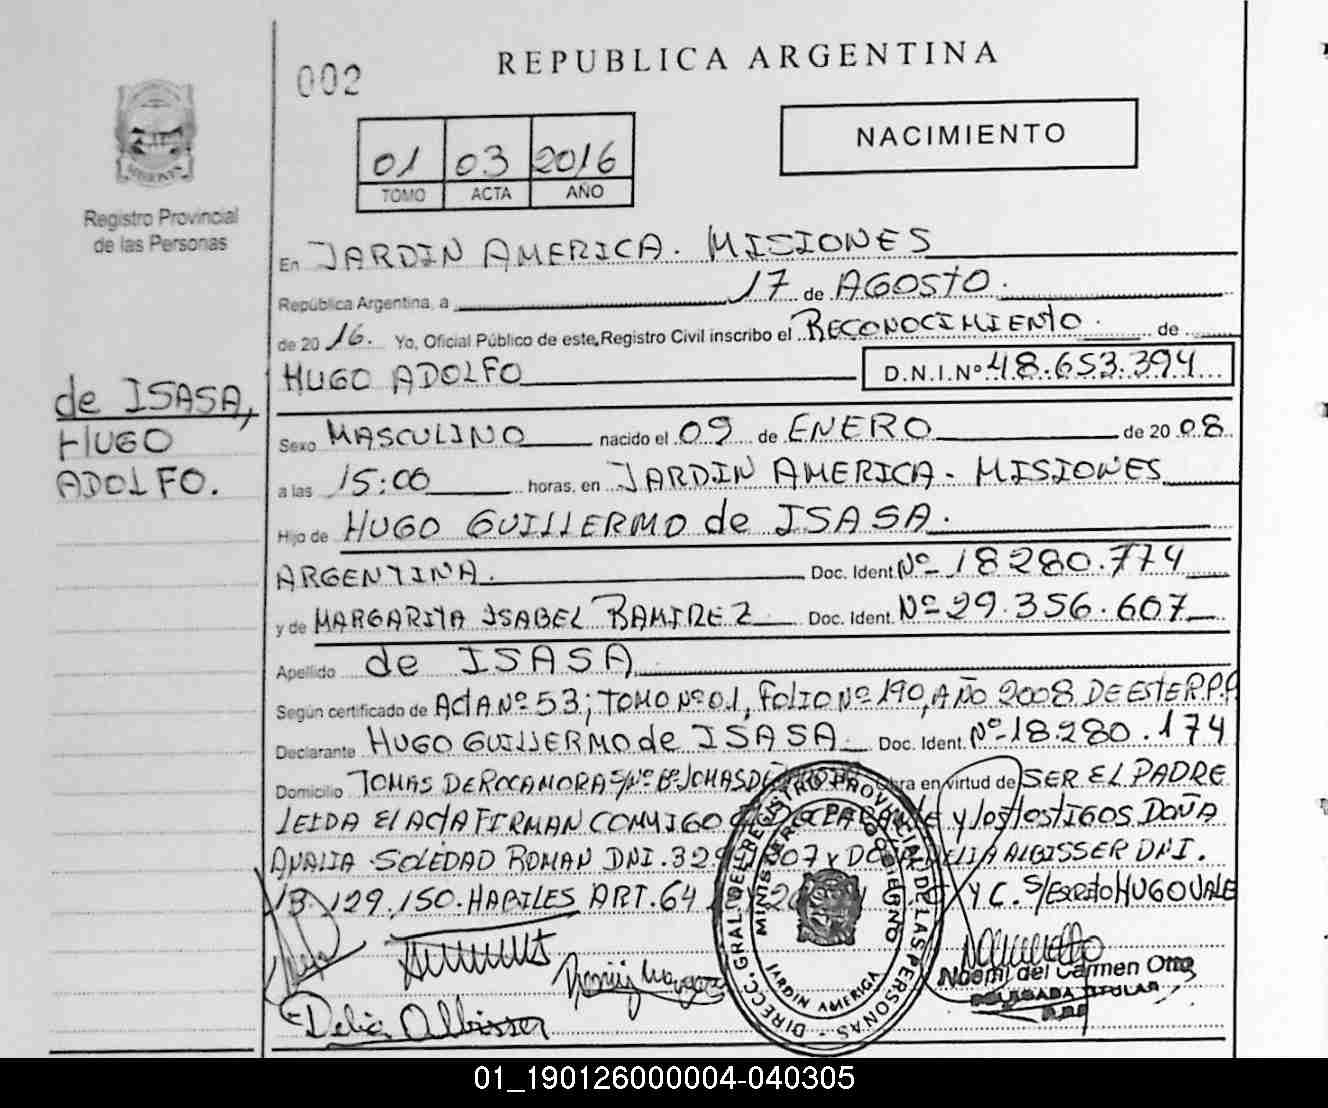 002
REPUBLICA ARGENTINA
NACIMIENTO
01 03 2016
TOMO ACTA AÑO
Registro Provincial
de las Personas
de ISASA,
HUGO
ADOLFO.
En JARDIN AMERICA. MISIONES
República Argentina, a 17 de AGOSTO.
de 2016. Yo, Oficial Público de este, Registro Civil inscribo el RECONOCIMIENTO. de
HUGO ADOLFO D.N.I.Nº 48.653.394
Sexo MASCULINO nacido el 09 de ENERO de 2008
a las 15:00 horas, en JARDIN AMERICA - MISIONES
Hijo de HUGO GUILLERMO de ISASA.
ARGENTINA. Doc. Ident. Nº 18280.774
y de MARGARITA ISABEL RAMIREZ Doc. Ident. Nº 29.356.607
Apellido de ISASA
Según certificado de ActA Nº 53; TOMO Nº 01, FOLIO Nº 190, AÑO 2008 DE ESTE R.P.P.
Declarante HUGO GUILLERMO de ISASA Doc. Ident. Nº 18280.174
Domicilio TOMAS DE ROCAMORA S/Nº Bº en virtud de SER EL PADRE
LEIDA El ActA FIRMAN CONMIGO y los tEstIGOS DOÑA
ANALIA SOLEDAD ROMAN DNI. 329 007 y ALBISSER DNI.
13.129.150. HABILES ART. 64 Y C. S/EscRito HUGO VALE
Delia Albisser
Noemi del Carmen Otto
DELEGADA TITULAR
DIRECC. GRAL. DEL REGISTRO PROVINCIAL DE LAS PERSONAS
MINISTERIO DE GOBIERNO
JARDIN AMERICA
01_190126000004-040305